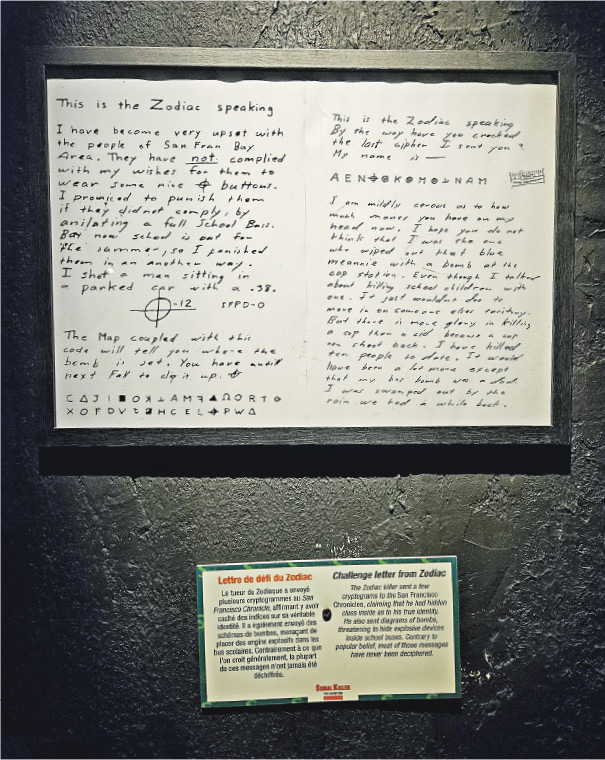 This is the Zodiac speaking
I have become very upset with
the people of San Fran Bay
Area. They have not complied
with my wishes for them to
wear some nice ⌖ buttons.
I promiced to punish them
if they did not comply, by
anilating a full School Buss.
But now school is out for
the summer, so I punished
them in an another way.
I shot a man sitting in
a parked car with a .38.
⌖-12 SFPD-0
The Map coupled with this
code will tell you where the
bomb is set. You have untill
next Fall to dig it up. ⌖
This is the Zodiac speaking
By the way have you cracked
the last cipher I sent you?
My name is —
A E N ⌖ ⊗ K ⊗ M ⊗ ⅃ N A M
I am mildly cerous as to how
much money you have on my
head now. I hope you do not
think that I was the one
who wiped out that blue
meannie with a bomb at the
cop station. Even though I talked
about killing school children with
one. It just wouldnt doo to
move in on someone elses teritory.
But there is more glory in killing
a cop than a cid because a cop
can shoot back. I have killed
ten people to date. It would
have been a lot more except
that my bus bomb was a dud.
I was swamped out by the
rain we had a while back.
Lettre de défi du Zodiac
Le tueur du Zodiaque a envoyé
plusieurs cryptogrammes au San
Francisco Chronicle, affirmant y avoir
caché des indices sur sa véritable
identité. Il a également envoyé des
schémas de bombes, menaçant de
placer des engins explosifs dans les
bus scolaires. Contrairement à ce que
l'on croit généralement, la plupart
de ces messages n'ont jamais été
déchiffrés.
Challenge letter from Zodiac
The Zodiac killer sent a few
cryptograms to the San Francisco
Chronicles, claiming that he had hidden
clues inside as to his true identity.
He also sent diagrams of bombs,
threatening to hide explosive devices
inside school buses. Contrary to
popular belief, most of those messages
have never been deciphered.
SERIAL KILLER